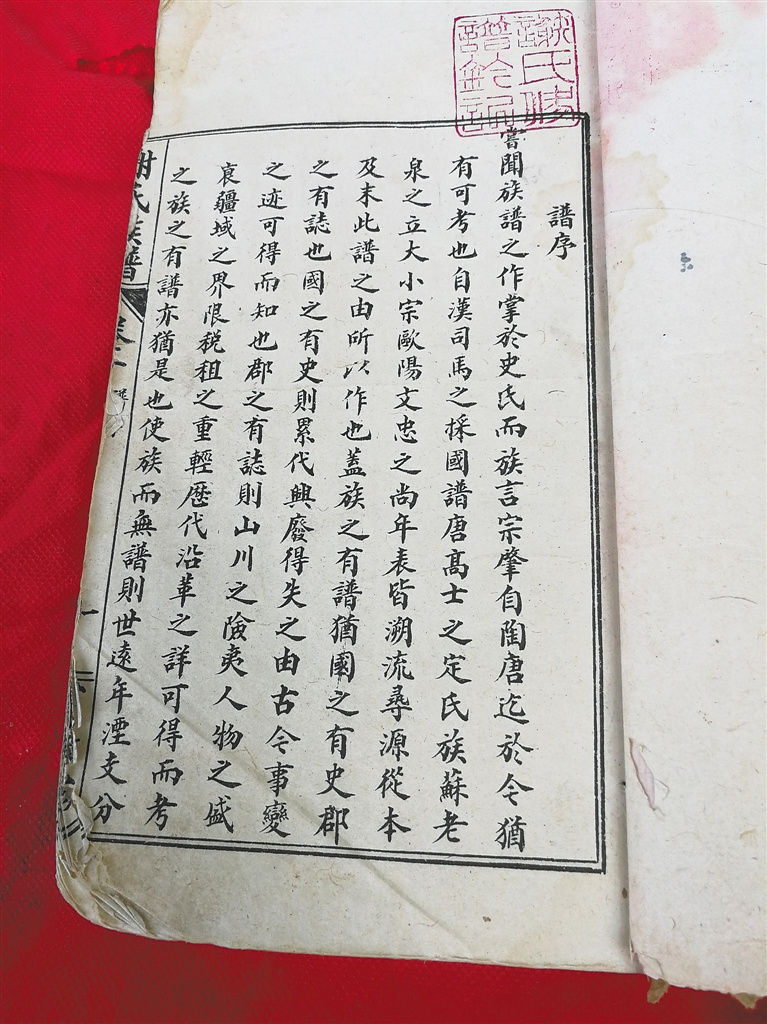 謝氏修
譜鈐記
譜序
嘗聞族譜之作掌於史氏而族言宗肇自陶唐迄於今猶
有可考也自漢司馬之採國譜唐髙士之定氏族蘇老
泉之立大小宗歐陽文忠之尚年表皆溯流尋源從本
及末此譜之由所以作也蓋族之有譜猶國之有史郡
之有誌也國之有史則累代興廢得失之由古今事變
之迹可得而知也郡之有誌則山川之險夷人物之盛
衰疆域之界限税租之重輕歷代沿革之詳可得而考
之族之有譜亦猶是也使族而無譜則世遠年湮支分
謝氏族譜